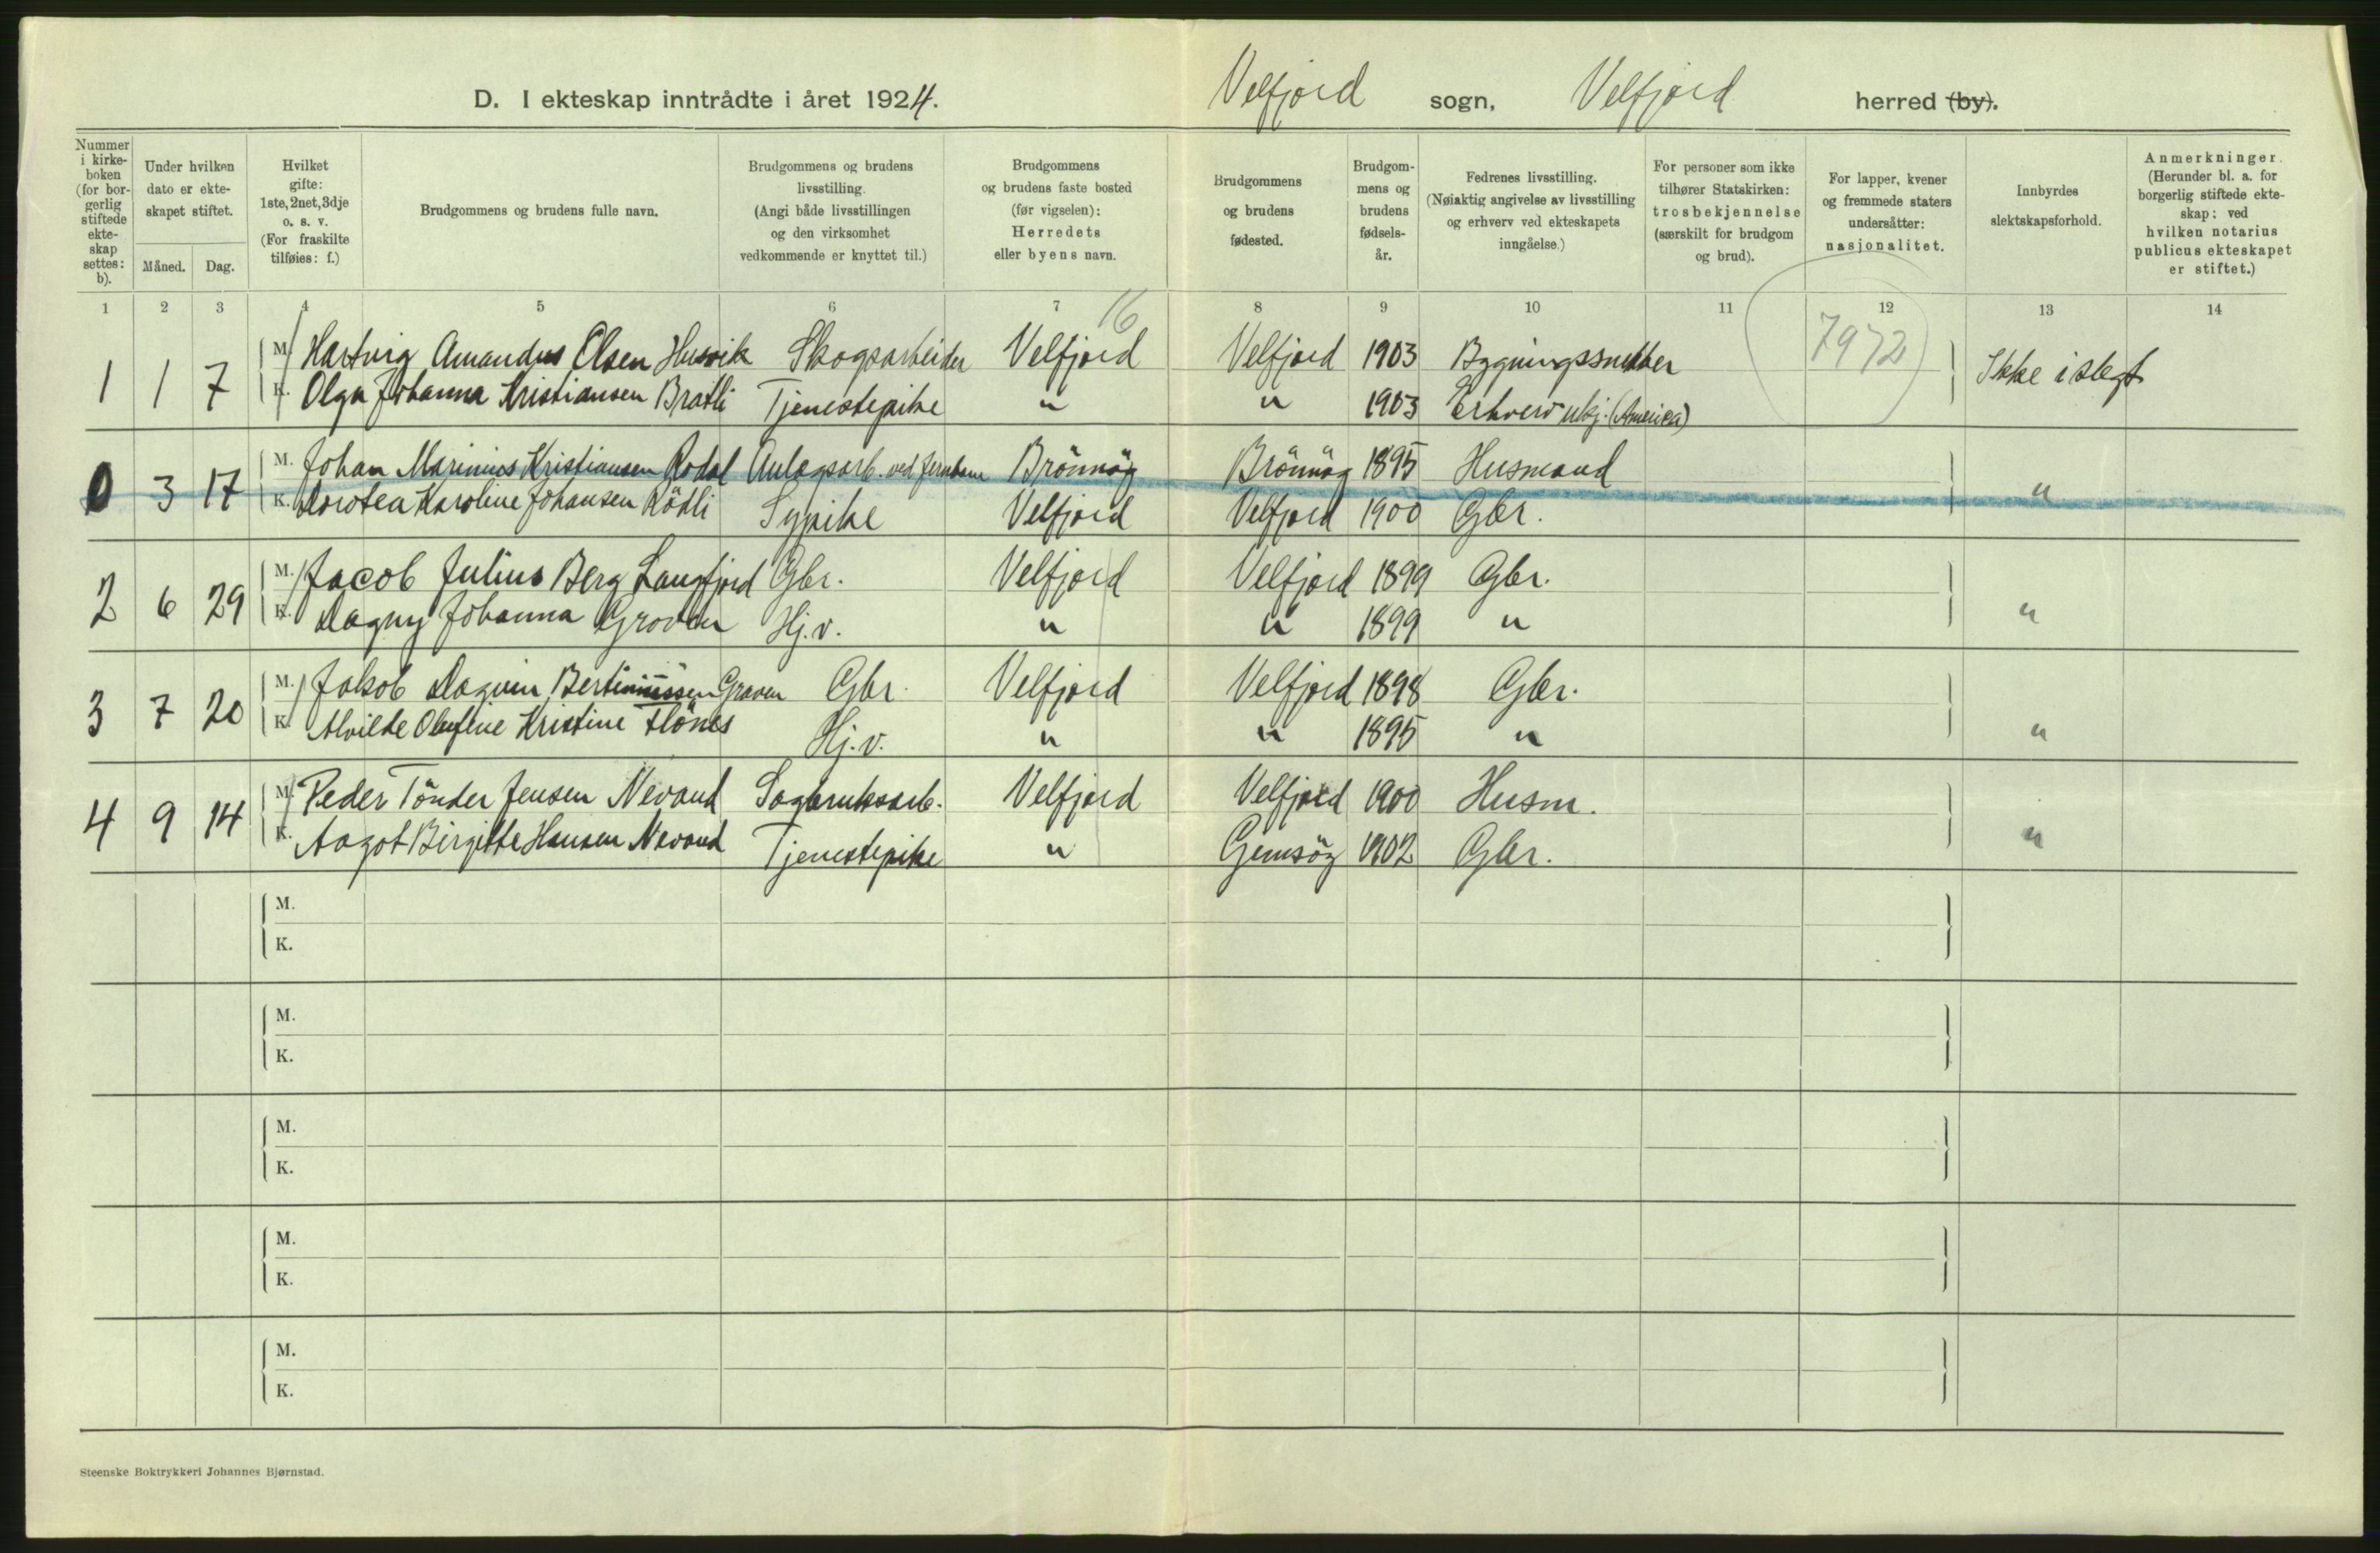 D. I ekteskap inntrådte i året 1924. Velfjord sogn, Velfjord herred (by).
Nummer i kirke-boken (for bor-gerlig stiftede ekte-skap settes: b).
Under hvilken dato er ekte-skapet stiftet.
Måned. Dag.
Hvilket gifte: 1ste, 2net, 3dje o. s. v. (For fraskilte tilføies: f.)
Brudgommens og brudens fulle navn.
Brudgommens og brudens livsstilling. (Angi både livsstillingen og den virksomhet vedkommende er knyttet til.)
Brudgommens og brudens faste bosted (før vigselen): Herredets eller byens navn.
Brudgommens og brudens fødested.
Brudgom-mens og brudens fødsels-år.
Fedrenes livsstilling. (Nøiaktig angivelse av livsstilling og erhverv ved ekteskapets inngåelse.)
For personer som ikke tilhører Statskirken: trosbekjennelse (særskilt for brudgom og brud).
For lapper, kvener og fremmede staters undersåtter: nasjonalitet.
Innbyrdes slektskapsforhold.
Anmerkninger. (Herunder bl. a. for borgerlig stiftede ekte-skap: ved hvilken notarius publicus ekteskapet er stiftet.)
1 2 3 4 5 6 7 8 9 10 11 12 13 14
16
7972
1 1 7 M. Hartvig Amandus Olsen Husvik Skogsarbeider Velfjord Velfjord 1903 Bygningssnekker Ikke i slegt
K. Olga Johanna Kristiansen Bratli Tjenestepike " " 1903 Erhverv ukj. (America)
0 3 17 M. Johan Marinius Kristiansen Rodal Anlægsarb. ved jernbane Brönnöy Brönnöy 1895 Husmand "
K. Dorotea Karoline Johansen Rödli Sypike Velfjord Velfjord 1900 Gbr.
2 6 29 M. Jacob Julius Berg Langfjord Gbr. Velfjord Velfjord 1899 Gbr. "
K. Dagny Johanna Groven Hj.v. " " 1899 "
3 7 20 M. Jakob Dagvin Bertiniussen Graven Gbr. Velfjord Velfjord 1898 Gbr. "
K. Alvilde Olufine Kristine Hönes Hj.v. " " 1895 "
4 9 14 M. Peder Tönder Jensen Nevand Sagbruksarb. Velfjord Velfjord 1900 Husm. "
K. Aagot Birgitte Hansen Nevand Tjenestepike " Gimsöy 1902 Gbr.
M.
K.
M.
K.
M.
K.
M.
K.
M.
K.
Steenske Boktrykkeri Johannes Bjørnstad.